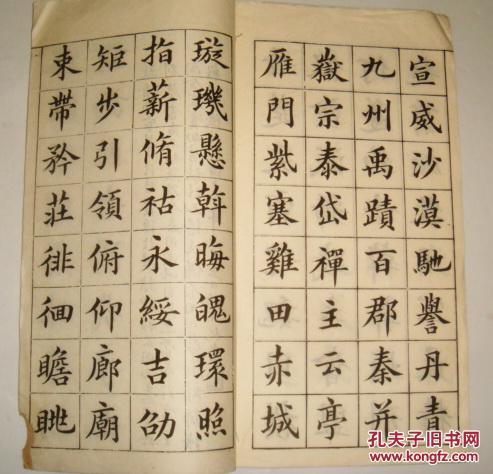 宣威沙漠馳譽丹青
九州禹蹟百郡秦并
嶽宗泰岱禪主云亭
雁門紫塞雞田赤城
璇璣懸斡晦魄環照
指薪脩祜永綏吉劭
矩步引領俯仰廊廟
束帶矜莊徘徊瞻眺
孔夫子旧书网
kongfz.com